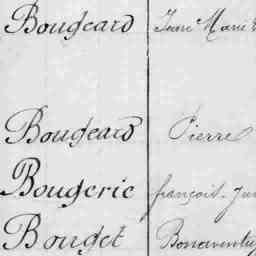 Bougeard Jean Marie
Bougeard Pierre
Bougerie françois
Bouget Bonaventu